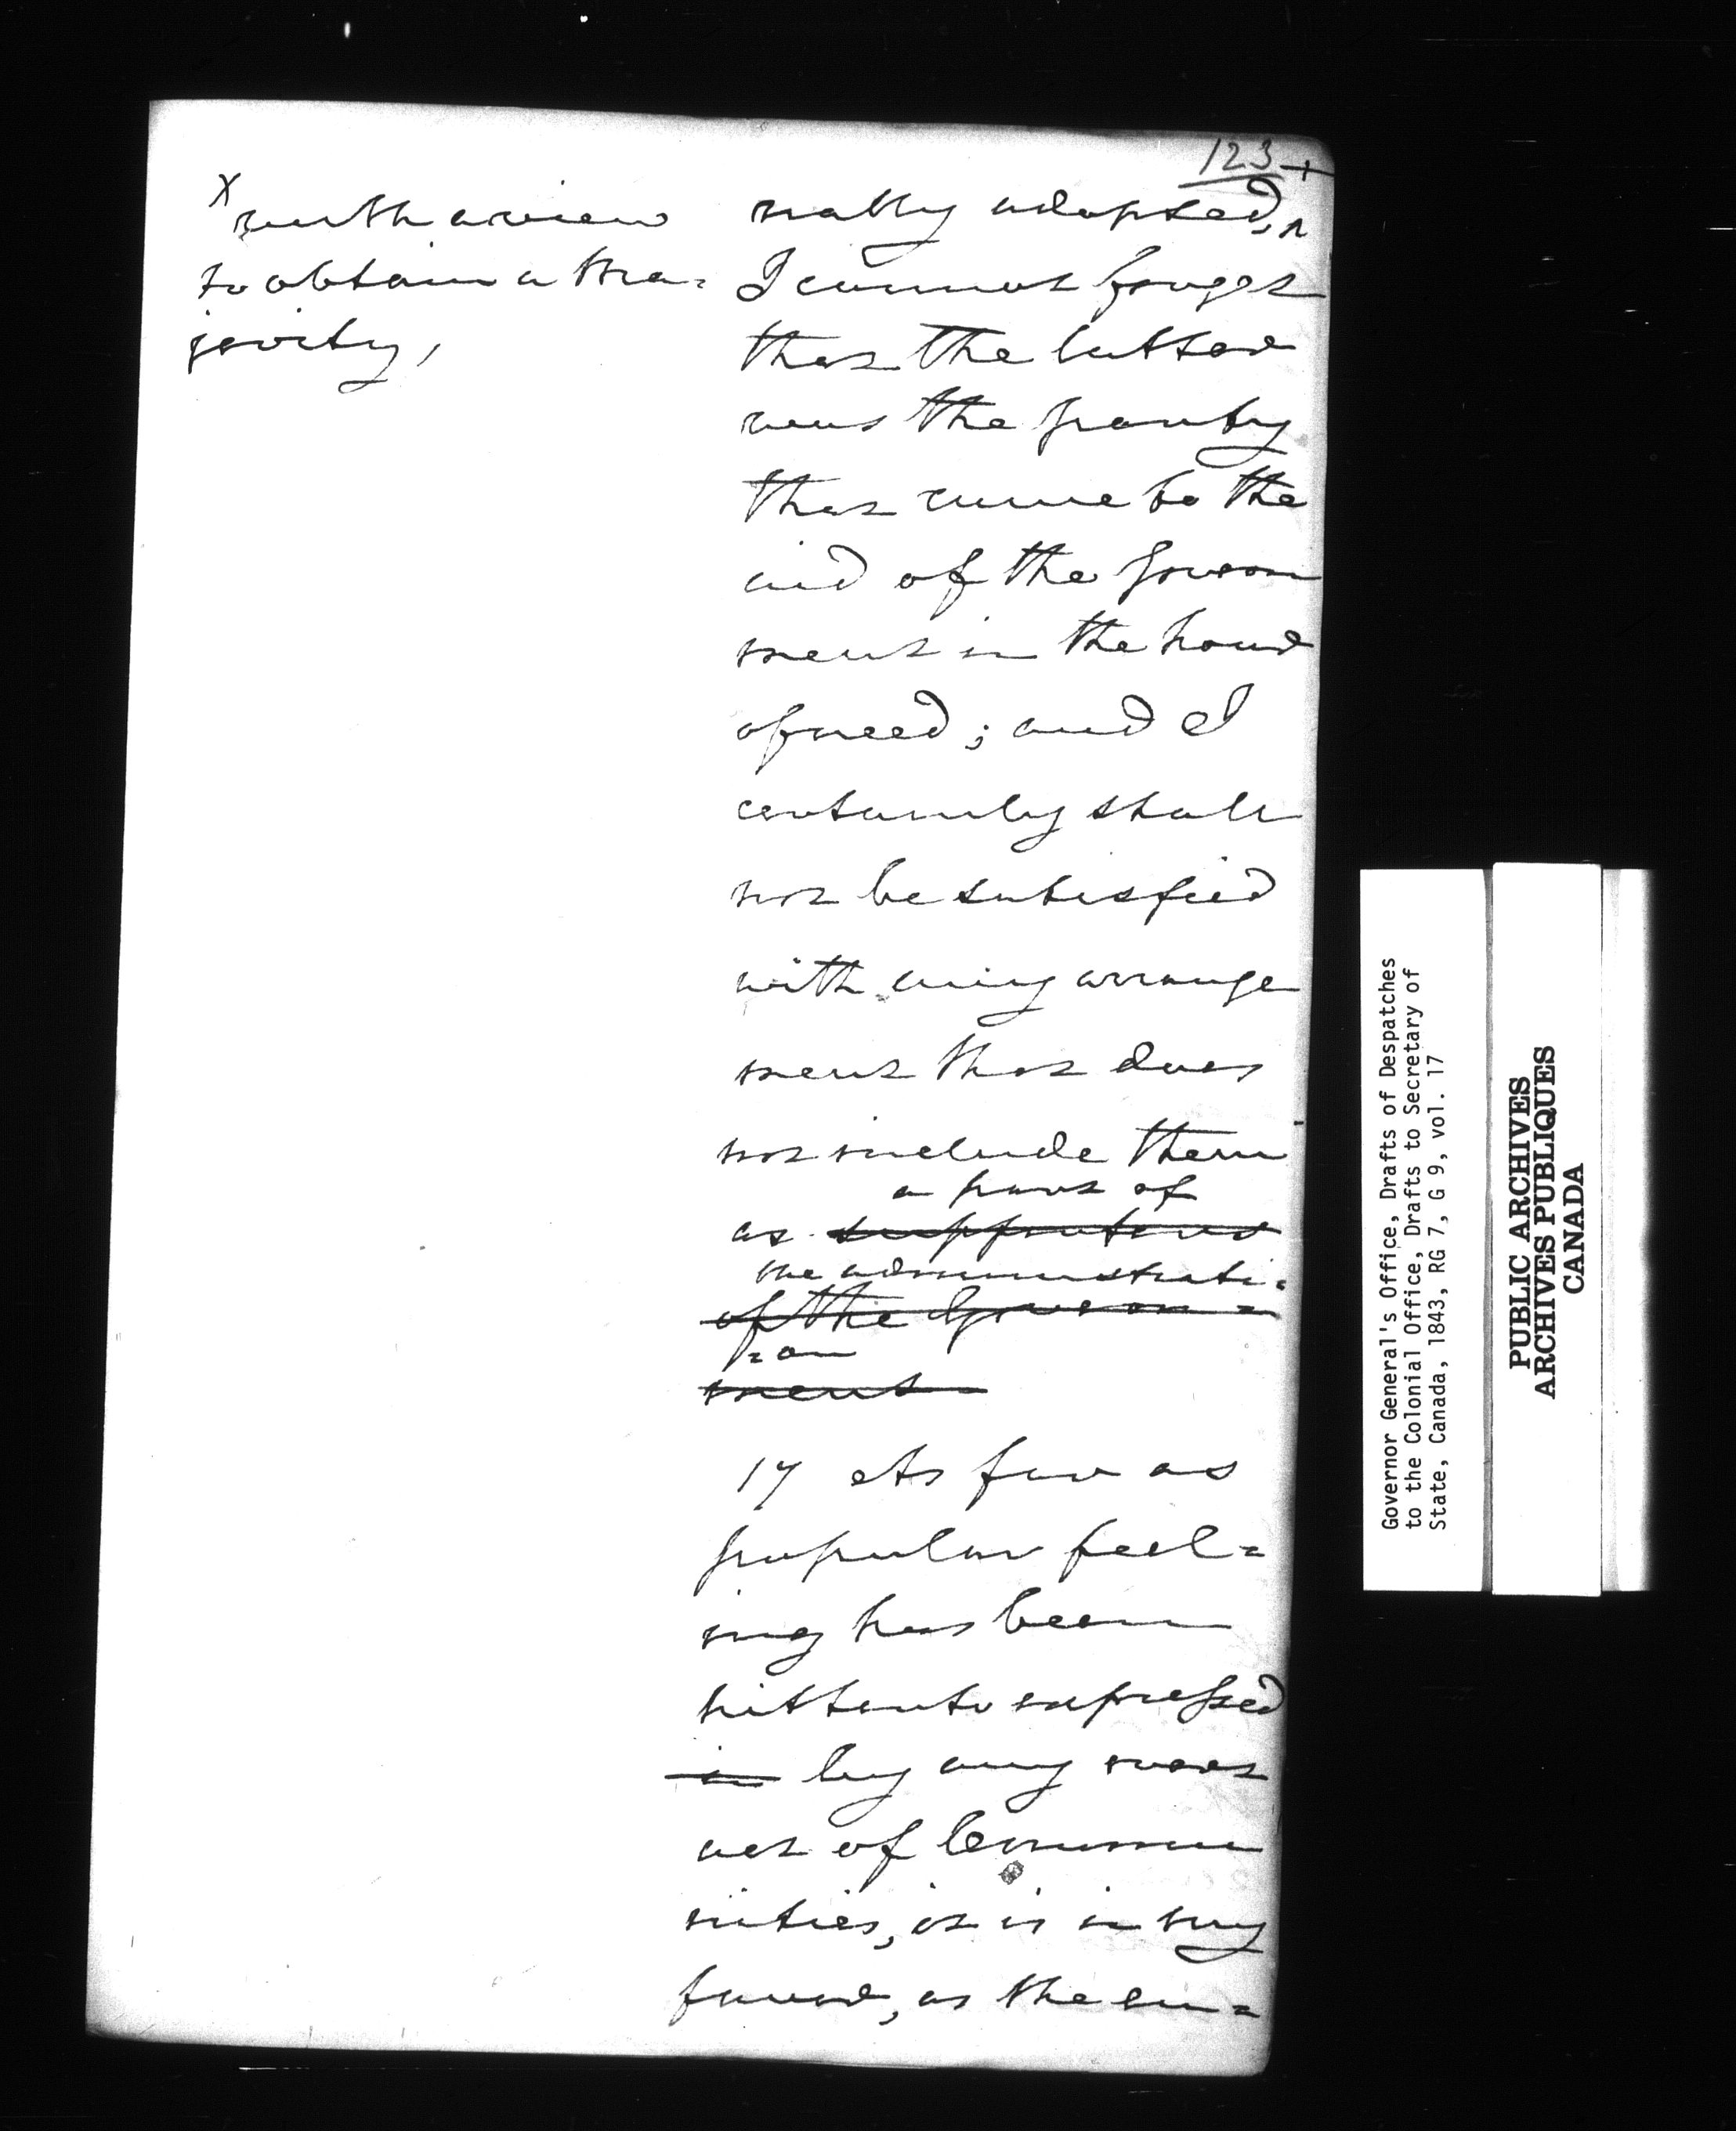 123
+
x with a view
to obtain a Ma=
jority,
nally adopted, ^
I cannot forget
that the latter
was the party
that came to the
aid of the Govern
ment in the hour
of need; and I
certainly shall
not be satisfied
with any arrange
ment that does
not include them
a part of
as supporters
the administrati=
of the Govern=
=on
ment
17 As far as
popular feel=
ing has been
hitherto expressed
in by any overt
act of Commu
nities, it is in my
favor, as the en=
Governor General's Office, Drafts of Despatches
to the Colonial Office, Drafts to Secretary of
State, Canada, 1843, RG 7, G 9, vol. 17
PUBLIC ARCHIVES
ARCHIVES PUBLIQUES
CANADA